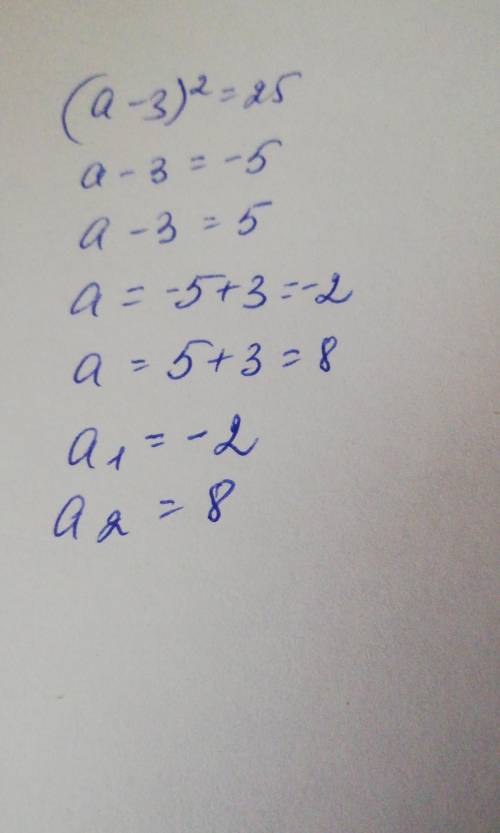 (a-3)²=25
a-3=-5
a-3=5
a=-5+3=-2
a=5+3=8
a₁=-2
a₂=8